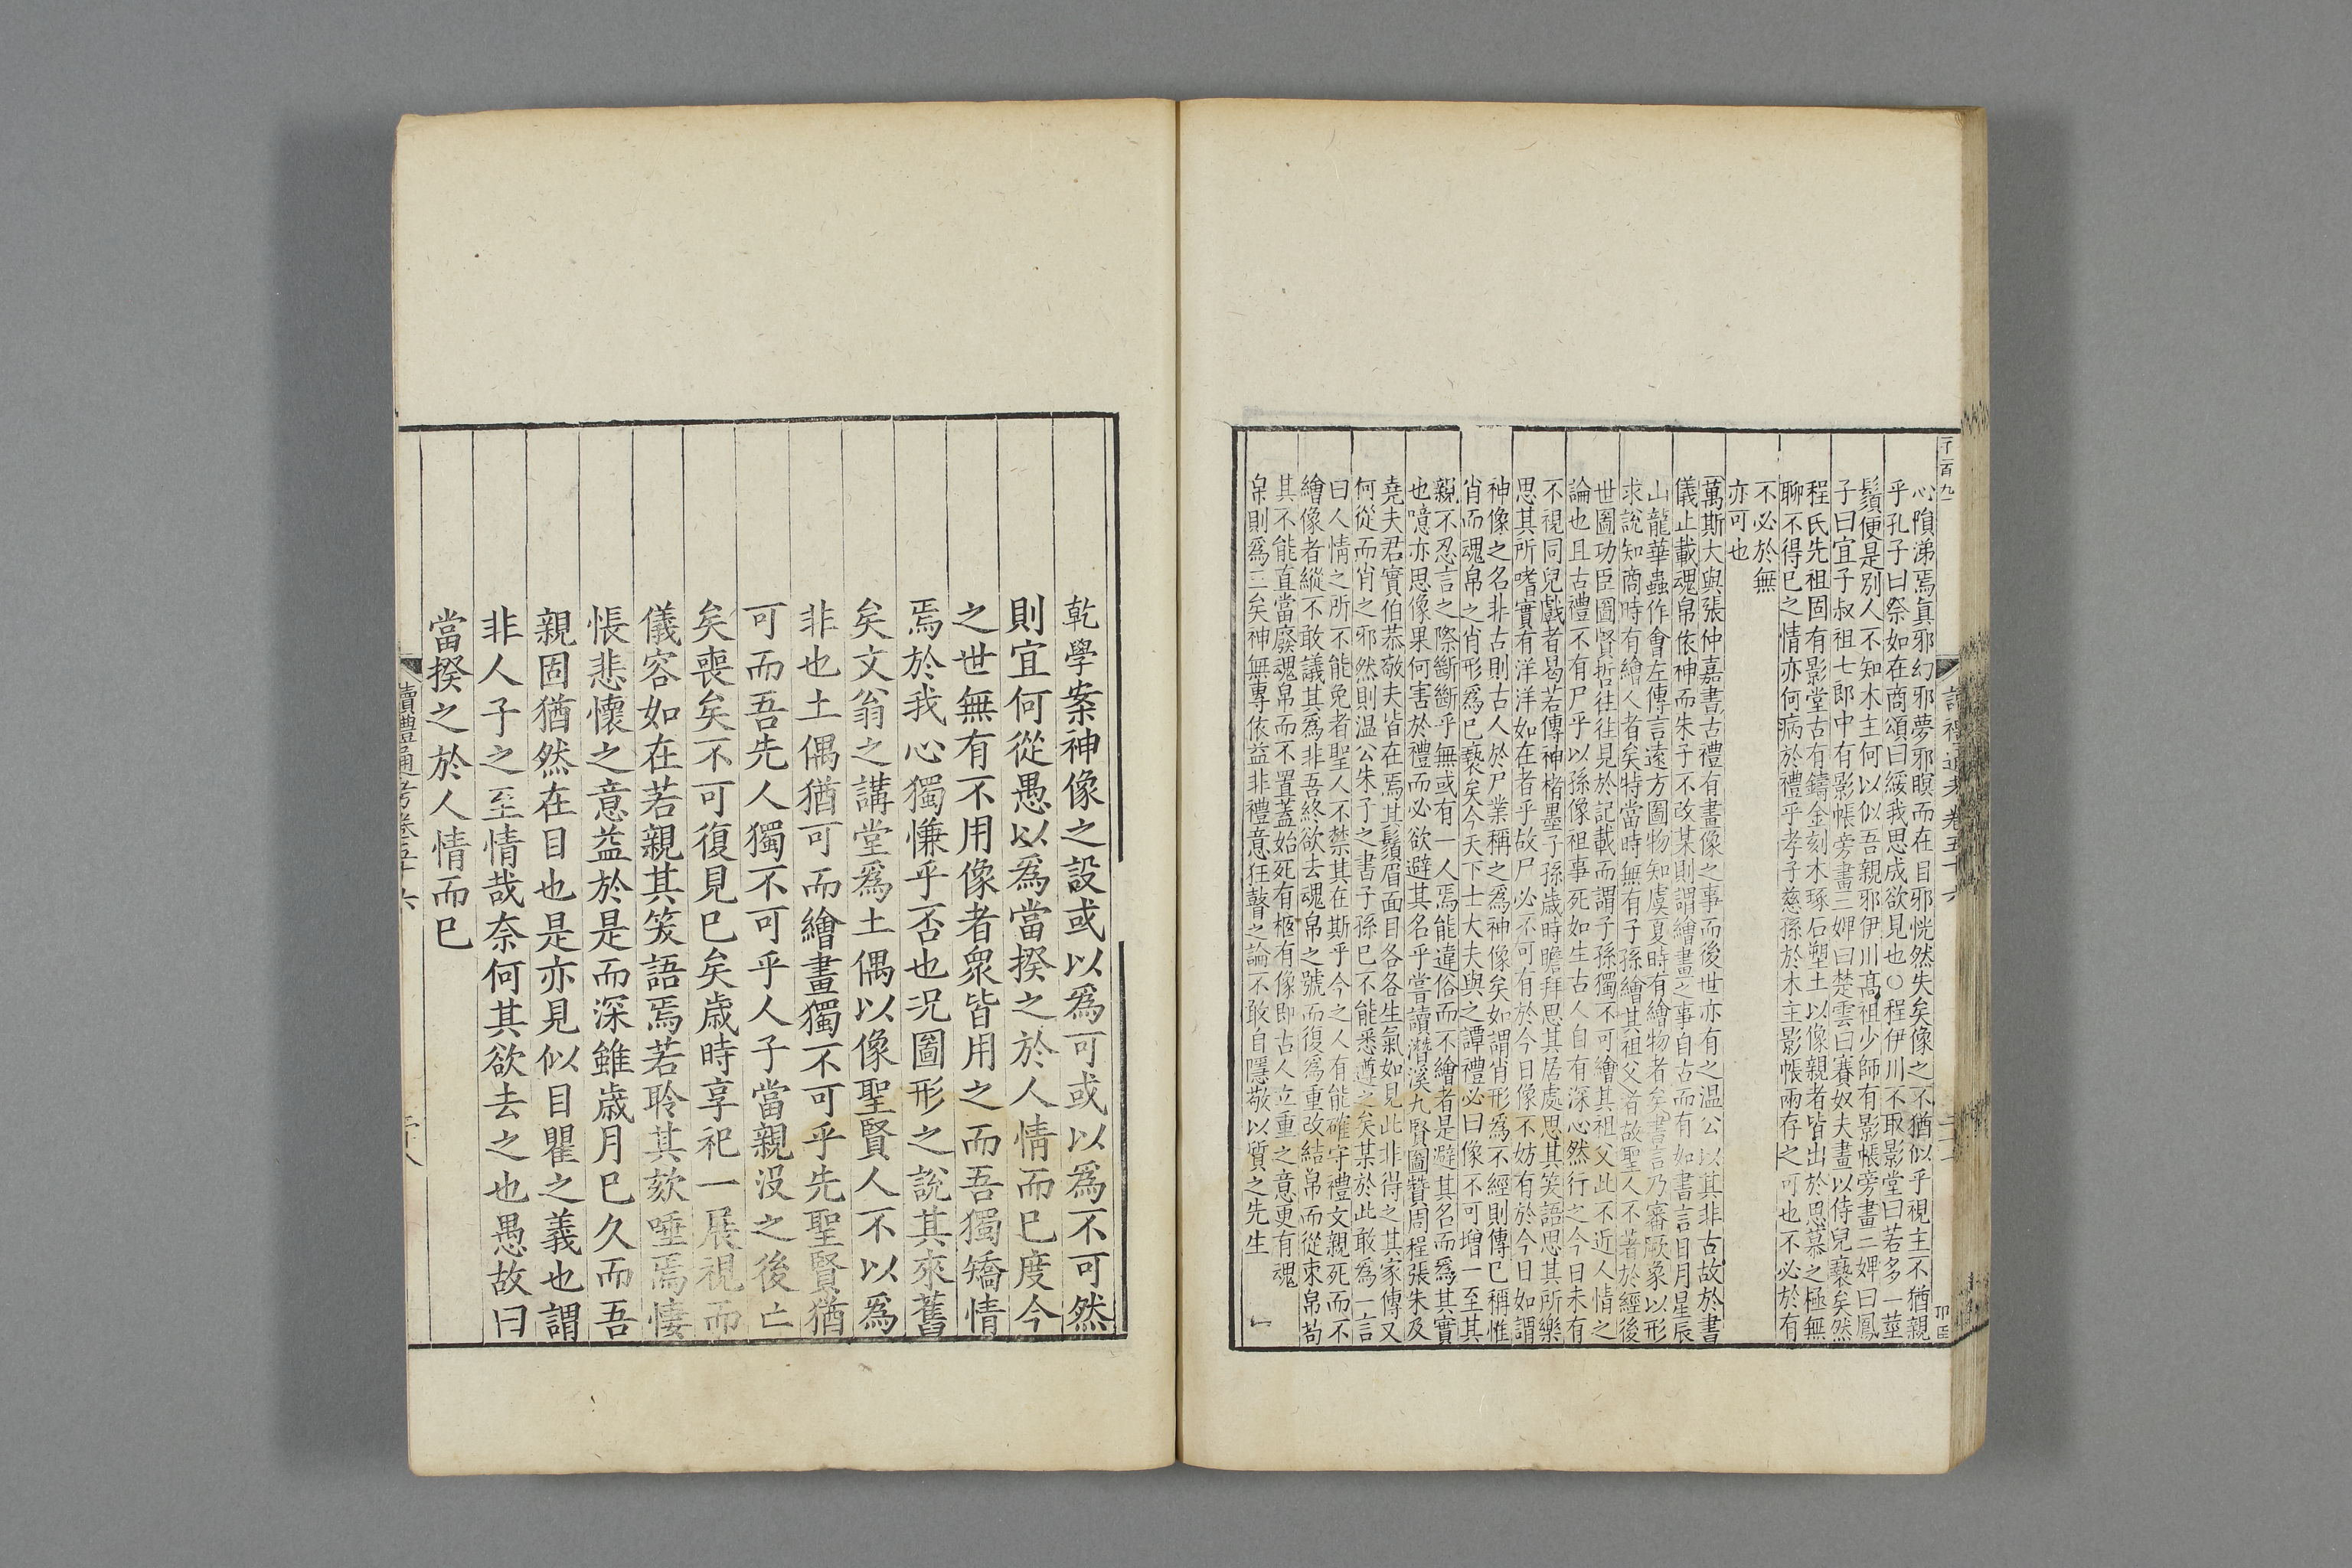 一千一百九
讀禮通考卷五十六
心隕涕焉眞邪幻邪夢邪瞑而在目邪恍然失矣像之不猶似乎視主不猶親
乎孔子曰祭如在商頌曰綏我思成欲見也○程伊川不取影堂曰若多一莖
鬚便是別人不知木主何以似吾親邪伊川髙祖少師有影帳旁畫二婢曰鳳
子曰宜子叔祖七郎中有影帳旁畫三婢曰楚雲曰賽奴夫畫以侍兒䙝矣然
程氏先祖固有影堂古有鑄金刻木琢石塑土以像親者皆出於思慕之極無
聊不得已之情亦何病於禮乎孝子慈孫於木主影帳兩存之可也不必於有
不必於無
亦可也
萬斯大與張仲嘉書古禮有畫像之事而後世亦有之温公以其非古故於書
儀止載魂帛依神而朱子不改某則謂繪畫之事自古而有如書言日月星辰
山龍華蟲作會左傳言遠方圖物知虞夏時有繪物者矣書言乃審厥象以形
求說知商時有繪人者矣特當時無有子孫繪其祖父者故聖人不著於經後
世圖功臣圖賢哲往往見於記載而謂子孫獨不可繪其祖父此不近人情之
論也且古禮不有尸乎以孫像祖事死如生古人自有深心然行之今日未有
不視同兒戲者曷若傳神楮墨子孫歲時瞻拜思其居處思其笑語思其所樂
思其所嗜實有洋洋如在者乎故尸必不可有於今日像不妨有於今日如謂
神像之名非古則古人於尸業稱之爲神像矣如謂肖形爲不經則傳已稱惟
肖而魂帛之肖形爲已䙝矣今天下士大夫與之譚禮必曰像不可增一至其
親不忍言之際斷斷乎無或有一人焉能違俗而不繪者是避其名而爲其實
也噫亦思像果何害於禮而必欲避其名乎嘗讀潛溪九賢圖贊周程張朱及
堯夫君實伯恭敬夫皆在焉其鬚眉面目各各生氣如見此非得之其家傳又
何從而肖之邪然則温公朱子之書子孫已不能悉遵之矣某於此敢爲一言
曰人情之所不能免者聖人不禁其在斯乎今之人有能確守禮文親死而不
繪像者縱不敢議其爲非吾終欲去魂帛之號而復爲重改結帛而從束帛苟
其不能直當廢魂帛而不置蓋始死有柩有像即古人立重之意更有魂
帛則爲三矣神無專依益非禮意狂瞽之論不敢自隱敬以質之先生
乾學案神像之設或以爲可或以爲不可然
則宜何從愚以爲當揆之於人情而已度今
之世無有不用像者衆皆用之而吾獨矯情
焉於我心獨慊乎否也况圖形之說其來舊
矣文翁之講堂爲土偶以像聖賢人不以爲
非也土偶猶可而繪畫獨不可乎先聖賢猶
可而吾先人獨不可乎人子當親沒之後亡
矣喪矣不可復見已矣歲時享祀一展視而
儀容如在若親其笑語焉若聆其欬唾焉悽
悵悲懷之意益於是而深雖歲月已久而吾
親固猶然在目也是亦見似目瞿之義也謂
非人子之至情哉奈何其欲去之也愚故曰
當揆之於人情而已
讀禮通考卷五十六